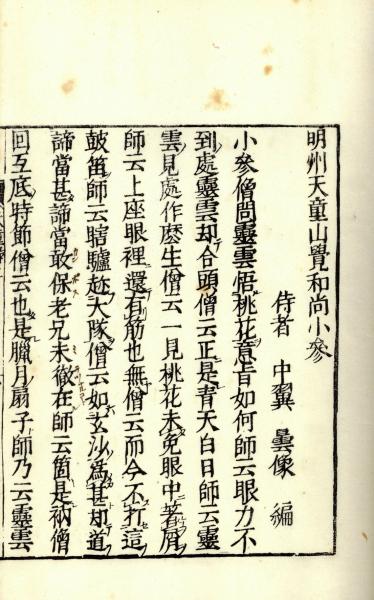 明州天童山覺和尚小參
侍者 中翼 曇像 編
小參僧問靈雲悟桃花意旨如何師云眼力不
到處靈雲却合頭僧云正是青天白日師云靈
雲見處作麼生僧云一見桃花未免眼中著屑
師云上座眼裡還有筋也無僧云而今不打這
鼓笛師云瞎驢趂大隊僧云如玄沙爲甚却道
諦當甚諦當敢保老兄未徹在師云箇是衲僧
回互底時節僧云也是臘月扇子師乃云靈雲